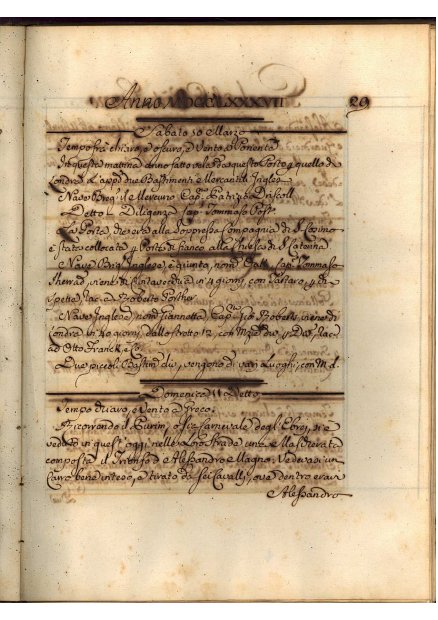 Anno MDCCLXXXVII 29
Sabato 10 Marzo
Tempo frà chiaro, e oscuro, e Vento a Ponente
In questa mattina anno fatto vela da questo Porto p quello di
Londra L'appo due Bastimenti Mercantili Inglesi
Nave Brigo il Mercurio Capo Patrizio Driscoll
Detto L Diligenza Capo Tommaso
La Porta, che era alla Soppressa Compagnia di S. Cosimo
è stata collocata p Porta di fianco alla Chiesa di S. Caterina
Nave Brigo Inglese, è giunta, nom Capo Tommaso
viene di in 19 giorni, con Tartaro, e di
Spetta, Racca Roberto Porther
Nave Inglese nom Giannetta, Capo Gio Roberts viene di
Londra in 40 giorni, dallo Stretto 12, con Mzie div, Racc
ad Otto Franck, e Co
Due piccoli Bastimti div, vengono di vari Luoghi, con M. d.
Domenica 11 Detto
Tempo chiaro, e Vento a Greco
Ricorrendo il Purim, o sia Carnevale degl'Ebrei, si è
veduto in quest'oggi nelle Loro Strade una Mascherata
composta il Trionfo d'Alessandro Magno; Vedevasi un
Carro bene inteso, e tirato da sei Cavalli, ove dentro eravi
Alessandro